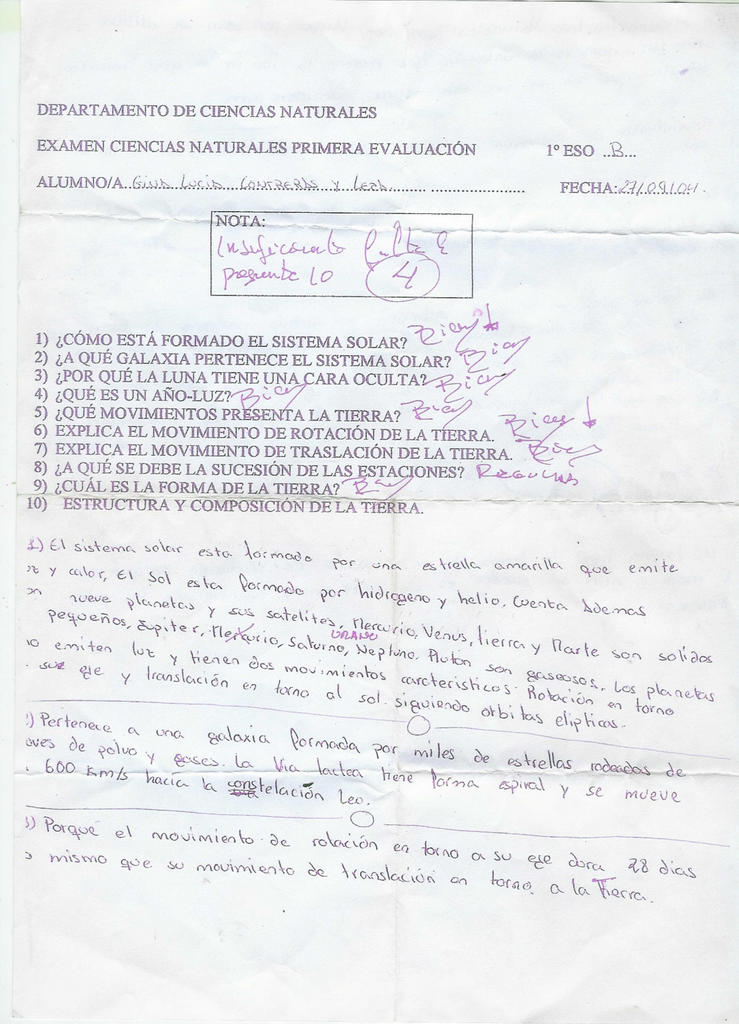 DEPARTAMENTO DE CIENCIAS NATURALES
EXAMEN CIENCIAS NATURALES PRIMERA EVALUACIÓN 1º ESO ..B...
ALUMNO/A. Lucia Contreras y Leal FECHA: 27/09/04.
NOTA:
Insuficiente falta
pregunta 10 4
1) ¿CÓMO ESTÁ FORMADO EL SISTEMA SOLAR? Bien
2) ¿A QUÉ GALAXIA PERTENECE EL SISTEMA SOLAR? Bien
3) ¿POR QUÉ LA LUNA TIENE UNA CARA OCULTA? Bien
4) ¿QUÉ ES UN AÑO-LUZ? Bien
5) ¿QUÉ MOVIMIENTOS PRESENTA LA TIERRA? Bien
6) EXPLICA EL MOVIMIENTO DE ROTACIÓN DE LA TIERRA. Bien
7) EXPLICA EL MOVIMIENTO DE TRASLACIÓN DE LA TIERRA. Bien
8) ¿A QUÉ SE DEBE LA SUCESIÓN DE LAS ESTACIONES? REGULAR
9) ¿CUÁL ES LA FORMA DE LA TIERRA? Bien
10) ESTRUCTURA Y COMPOSICIÓN DE LA TIERRA.
1.) El sistema solar esta formado por una estrella amarilla que emite
y calor, El Sol esta formado por hidrogeno y helio, Cuenta Ademas
nueve planetas y sus satelites, Mercurio, Venus, Tierra y Marte son solidos
pequeños, Jupiter, Saturno, URANO Neptuno, Plutón son gaseosos. Los planetas
no emiten luz y tienen dos movimientos carcteristicos. Rotación en torno
su eje y translación en torno al sol siguiendo orbitas elipticas.
) Pertenece a una galaxia formada por miles de estrellas rodeadas de
de polvo y gases. La Via lactea tiene forma espiral y se mueve
600 Km/s hacía la constelación Leo.
) Porque el movimiento de rotación en torno a su eje dura 28 dias
mismo que su movimiento de translación en torno a la Tierra.